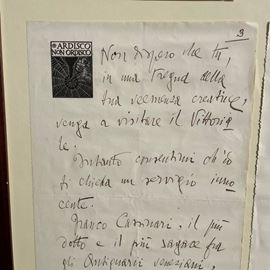 3
ARDISCO
NON ORDISCO
Non dispero che tu,
in una tregua della
tua veemenza creatrice,
venga a visitare il Vittoria
le.
Intanto consentimi ch'io
ti chieda un servigio inno
cente.
Franco
il più
dotto e il più sagace fra
gli Antiquarii veneziani,